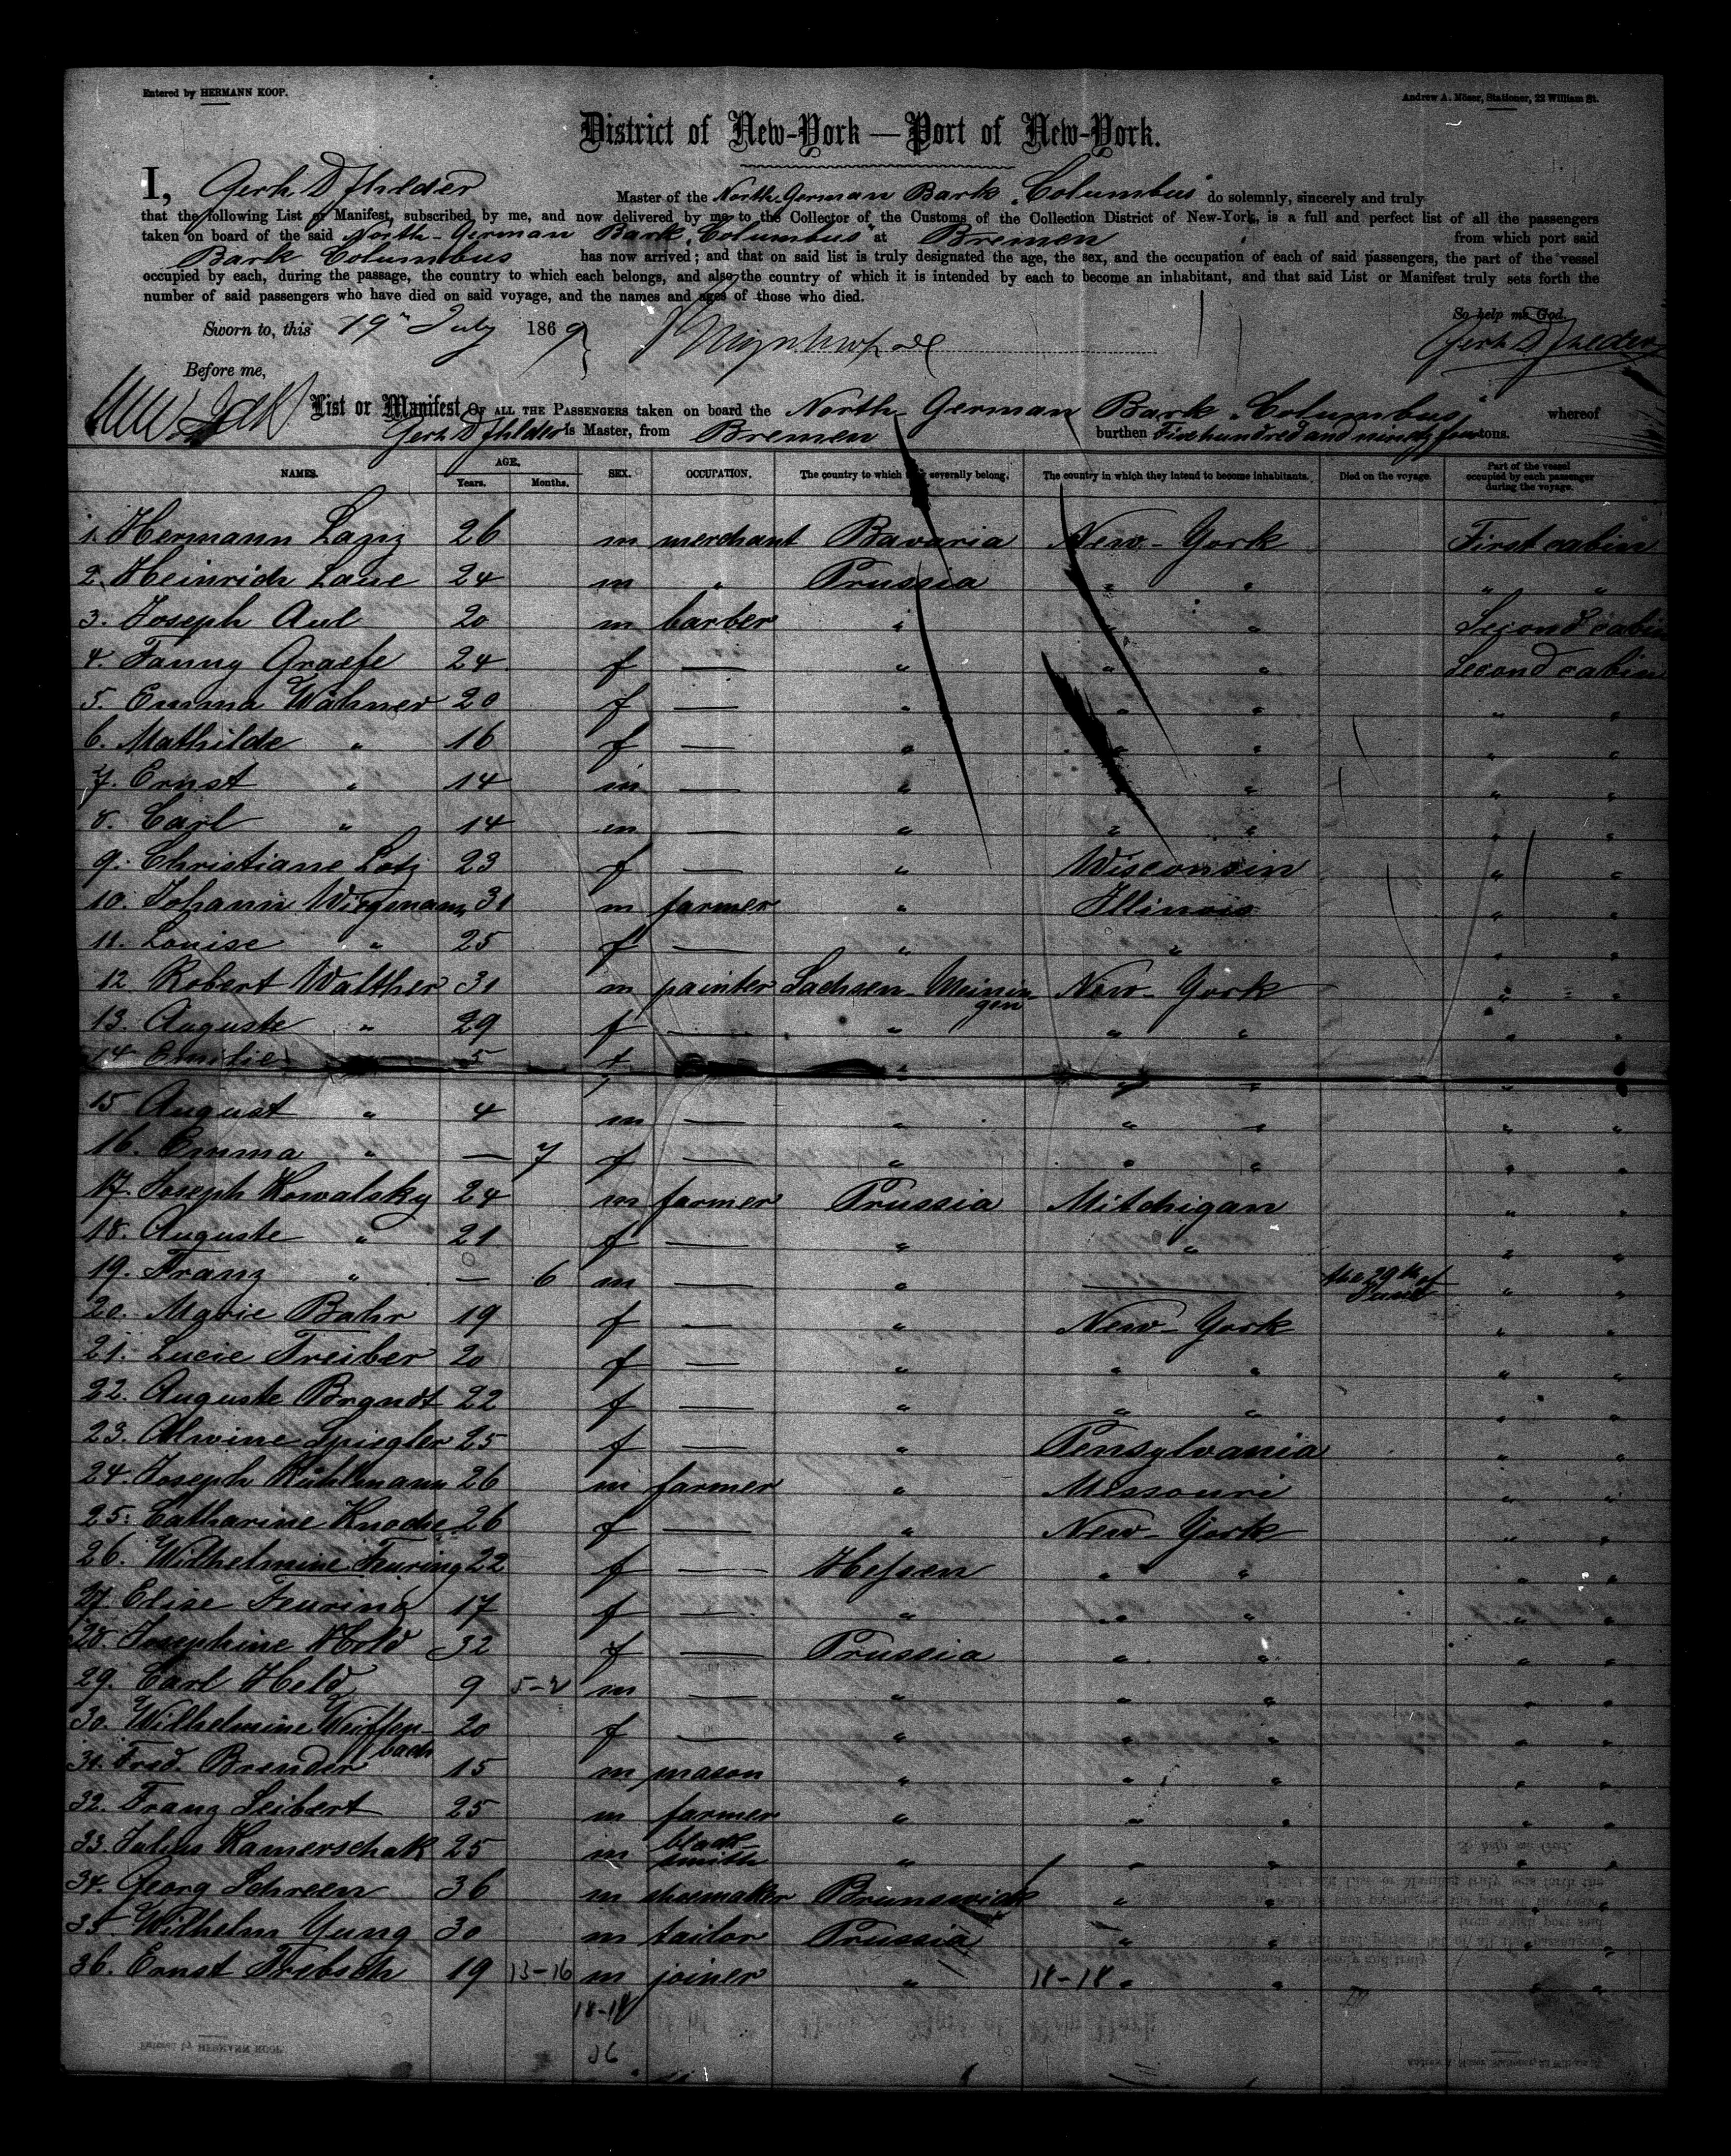 Entered by HERMANN KOOP.
Andrew A. Möser, Stationer, 22 William St.
District of New-York — Port of New-York.
I, Gerh. D Master of the North German Bark "Columbus" do solemnly, sincerely and truly
that the following List or Manifest, subscribed by me, and now delivered by me to the Collector of the Customs of the Collection District of New-York, is a full and perfect list of all the passengers
taken on board of the said North-German Bark "Columbus" at Bremen from which port said
Bark Columbus has now arrived; and that on said list is truly designated the age, the sex, and the occupation of each of said passengers, the part of the vessel
occupied by each, during the passage, the country to which each belongs, and also the country of which it is intended by each to become an inhabitant, and that said List or Manifest truly sets forth the
number of said passengers who have died on said voyage, and the names and ages of those who died.
So help me God.
Sworn to, this 19th July 1869
Gerh. D
Before me,
List or Manifest OF ALL THE PASSENGERS taken on board the North German Bark "Columbus" whereof
Gerh. D is Master, from Bremen burthen Five hundred and ninety four tons.
NAMES. AGE. Years. Months. SEX. OCCUPATION. The country to which they severally belong. The country in which they intend to become inhabitants. Died on the voyage. Part of the vessel occupied by each passenger during the voyage.
1. Hermann Lanz 26 m merchant Bavaria New-York First cabin
2. Heinrich Laue 24 m " Prussia " " " "
3. Joseph Aul 20 m barber " " " Second cabin
4. Fanny Graefe 24 f — " " " Second cabin
5. Emma Wähner 20 f — " " " " "
6. Mathilde " 16 f — " " " " "
7. Ernst " 14 m — " " " " "
8. Carl " 14 m — " " " " "
9. Christiane Lotz 23 f — " Wisconsin " "
10. Johann Wiegmann 31 m farmer " Illinois " "
11. Louise " 25 f — " " " "
12 Robert Walther 31 m painter Sachsen-Meiningen New-York " "
13. Auguste " 29 f — " " " " "
14 Emilie 5 f " " " " "
15 August " 4 m — " " " " "
16. Emma " — 7 f — " " " " "
17. Joseph Kowalsky 24 m farmer Prussia Mitchigan " "
18. Auguste " 21 f — " " " "
19. Franz " — 6 m — " — the 29th of June " "
20. Marie Bahr 19 f — " New-York " "
21. Lucie Treiber 20 f — " " " " "
22. Auguste Brandt 22 f — " " " " "
23. Alwine Spiegler 25 f — " Pensylvania " "
24. Joseph Kuhlmann 26 m farmer " Missouri " "
25. Catharine Knoche 26 f — " New-York " "
26. Wilhelmine Feuring 22 f — Hessen " " " "
27 Elise Feuring 17 f — " " " " "
28. Josephine Held 32 f — Prussia " " " "
29. Carl Held 9 5-2 m — " " " " "
30. Wilhelmine Weiffenbach 20 f — " " " " "
31. Fred. Brender 15 m mason " " " " "
32. Franz Seibert 25 m farmer " " " " "
33. Julius Kamerschak 25 m blacksmith " " " " "
34. Georg Schreen 36 m shoemaker Brunswick " " " "
35 Wilhelm Yung 30 m tailor Prussia " " " "
36. Ernst Trebsch 19 13-16 m joiner " 18-18 " " " "
18-18
36